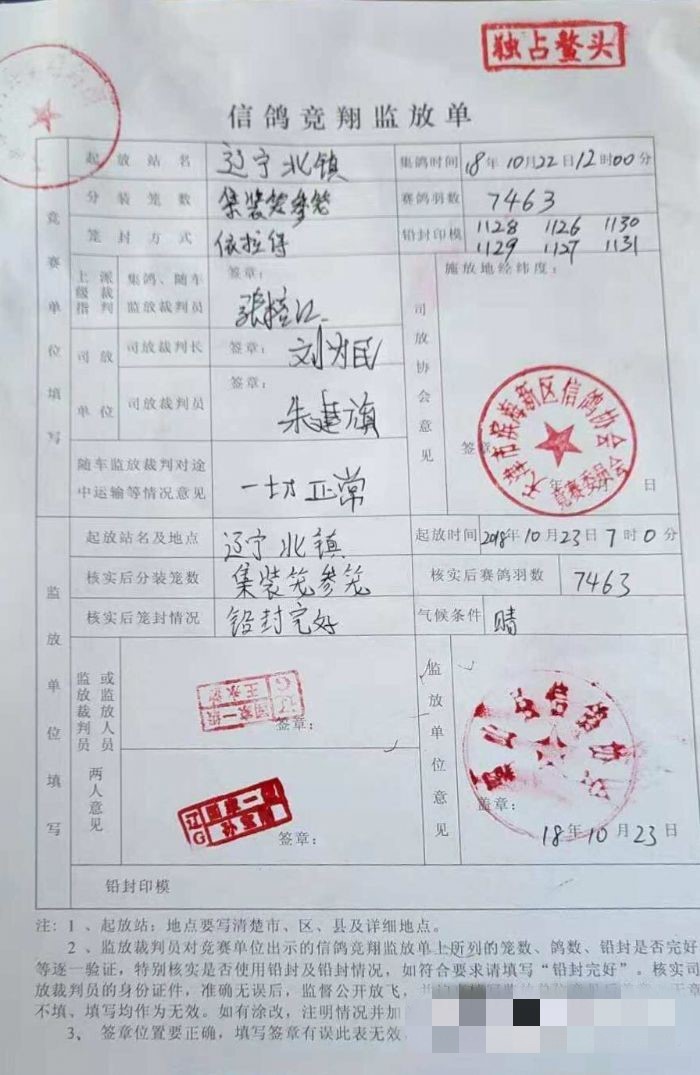 独占鳌头
信鸽竞翔监放单
竞赛单位填写
起放站名 辽宁北镇 集鸽时间 18年10月22日12时00分
分装笼数 集装笼叁笼 赛鸽羽数 7463
笼封方式 依拉得 铅封印模 1128 1126 1130
1129 1127 1131
上级指派裁判 集鸽、随车监放裁判员 签章：
司放协会意见 施放地经纬度：
司放单位 司放裁判长 签章：刘为民
司放裁判员 签章：朱建旗
签章 年 月 日
天津市滨海新区信鸽协会
竞赛委员会
随车监放裁判对途
中运输等情况意见 一切正常
监放单位填写
起放站名及地点 辽宁北镇 起放时间 2018年10月23日7时0分
核实后分装笼数 集装笼叁笼 核实后赛鸽羽数 7463
核实后笼封情况 铅封完好 气候条件 晴
监放裁判员或监放人员两人意见
辽G 国家一级
签章：
辽G 国家一级
签章：
监放单位意见
信鸽协会
盖章：
18年10月23日
铅封印模
注：1、起放站：地点要写清楚市、区、县及详细地点。
2、监放裁判员对竞赛单位出示的信鸽竞翔监放单上所列的笼数、鸽数、铅封是否完好
等逐一验证，特别核实是否使用铅封及铅封情况，如符合要求请填写“铅封完好”。核实司
放裁判员的身份证件，准确无误后，监督公开放飞，
不填、填写均作为无效。如有涂改，注明情况并加
3、签章位置要正确，填写签章有误此表无效